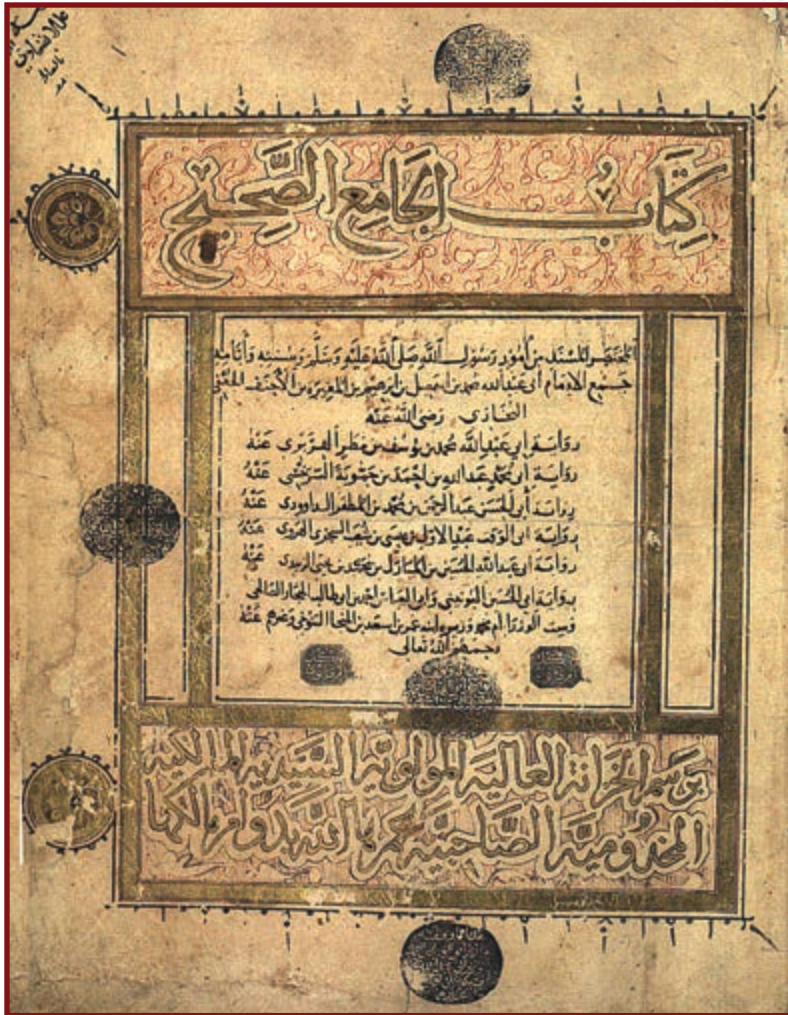 كِتَابُ الجَامِعِ الصَّحِيحِ
المختصر المسند من أمور رسول الله صلى الله عليه وسلم وسننه وأيامه
جمع الإمام أبي عبد الله محمد بن إسمعيل بن إبرهيم بن المغيرة بن الأحنف الجعفي
البخاري رضي الله عنه
رواية أبي عبد الله محمد بن يوسف بن مطر الفربري عنه
رواية أبي محمد عبد الله بن أحمد بن حمّوية السرخسي عنه
رواية أبي الحسن عبد الرحمن بن محمد بن المظفر الداوودي عنه
رواية أبي الوقت عبد الأول بن عيسى بن شعيب السجزي الهروي عنه
رواية أبي عبد الله الحسين بن المبارك بن محمد بن يحيى الزبيدي عنه
رواية أبي الحسين اليونيني وأبي العباس أحمد بن أبي طالب الحجار الصالحي
وست الوزرا أم محمد وزيره ابنة عمر بن أسعد بن المنجا التنوخي وغيرهم عنه
رحمهم الله تعالى
برسم الخزانة العالية المولوية السيدية المالكية
المخدومية الصاحبية عمرها الله بدوام مالكها